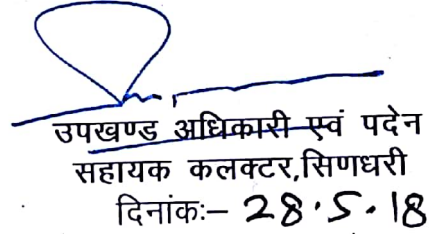 उपखण्ड अधिकारी एवं पदेन
सहायक कलक्टर,सिणधरी
दिनांकः– 28.5.18